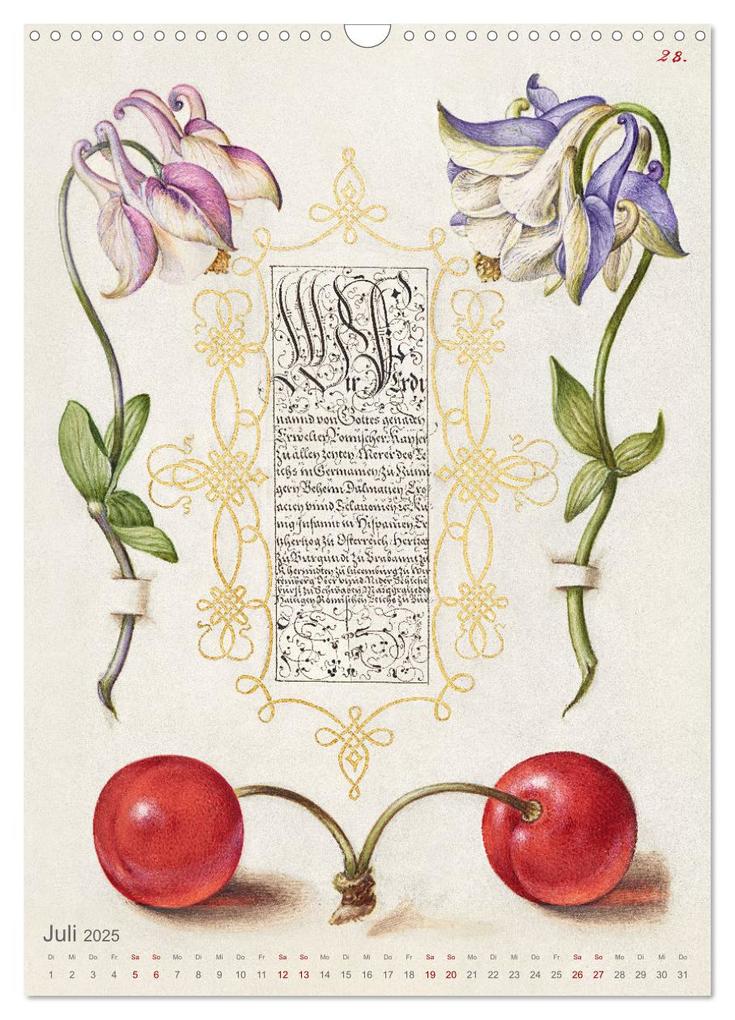 28.
Wir Ferdi
nannd von Gottes genaden
Erwelter Romischer Kayser
zu allen zeyten Merer des Re
ichs in Germanien, zu Hun
gern Beheim, Dalmatien Cro
acien unnd Sclauonien rc. Ku
nig Infannt in Hispanien Er
tzhertzog zu Osterreich, Hertzog
zu Burgundi zu Brabannt zu
Kherndten zu lucemburg zu Wir
temberg Ober unnd Nider Schlesi
Furst zu Schwaben, Marggraue des
Hailigen Römischen Reichs zu Bur
Juli 2025
Di Mi Do Fr Sa So Mo Di Mi Do Fr Sa So Mo Di Mi Do Fr Sa So Mo Di Mi Do Fr Sa So Mo Di Mi Do
1 2 3 4 5 6 7 8 9 10 11 12 13 14 15 16 17 18 19 20 21 22 23 24 25 26 27 28 29 30 31